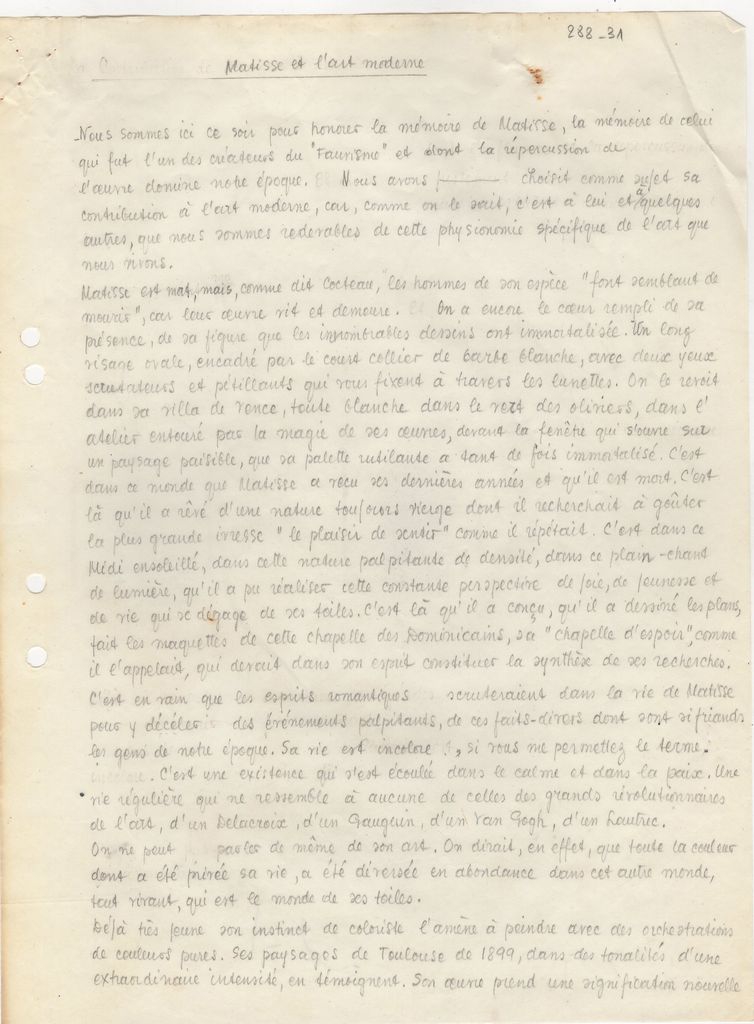 288-31
Matisse et l'art moderne
Nous sommes ici ce soir pour honorer la mémoire de Matisse, la mémoire de celui
qui fut l'un des créateurs du "Fauvisme" et dont la répercussion de
l'œuvre domine notre époque. Nous avons choisit comme sujet sa
contribution à l'art moderne, car, comme on le sait, c'est à lui et à quelques
autres, que nous sommes redevables de cette physionomie spécifique de l'art que
nous vivons.
Matisse est mort, mais, comme dit Cocteau, les hommes de son espèce "font semblant de
mourir", car leur œuvre vit et demeure. On a encore le cœur rempli de sa
présence, de sa figure que les innombrables dessins ont immortalisée. Un long
visage ovale, encadré par le court collier de barbe blanche, avec deux yeux
scrutateurs et pétillants qui vous fixent à travers les lunettes. On le revoit
dans sa villa de Vence, toute blanche dans le vert des oliviers, dans l'
atelier entouré par la magie de ses œuvres, devant la fenêtre qui s'ouvre sur
un paysage paisible, que sa palette rutilante a tant de fois immortalisé. C'est
dans ce monde que Matisse a vécu ses dernières années et qu'il est mort. C'est
là qu'il a rêvé d'une nature toujours vierge dont il recherchait à goûter
la plus grande ivresse "le plaisir de sentir" comme il répétait. C'est dans ce
Midi ensoleillé, dans cette nature palpitante de densité, dans ce plain-chant
de lumière, qu'il a pu réaliser cette constante perspective de joie, de jeunesse et
de vie qui se dégage de ses toiles. C'est là qu'il a conçu, qu'il a dessiné les plans,
fait les maquettes de cette chapelle des Dominicains, sa "chapelle d'espoir", comme
il l'appelait, qui devait dans son esprit constituer la synthèse de ses recherches.
C'est en vain que les esprits romantiques scruteraient dans la vie de Matisse
pour y décéler des événements palpitants, de ces faits-divers dont sont si friands
les gens de notre époque. Sa vie est incolore, si vous me permettez le terme.
C'est une existence qui s'est écoulée dans le calme et dans la paix. Une
vie régulière qui ne ressemble à aucune de celles des grands révolutionnaires
de l'art, d'un Delacroix, d'un Gauguin, d'un Van Gogh, d'un Lautrec.
On ne peut parler de même de son art. On dirait, en effet, que toute la couleur
dont a été privée sa vie, a été déversée en abondance dans cet autre monde,
tout vivant, qui est le monde de ses toiles.
Déjà très jeune son instinct de coloriste l'amène à peindre avec des orchestrations
de couleurs pures. Ses paysages de Toulouse de 1899, dans des tonalités d'une
extraordinaire intensité, en témoignent. Son œuvre prend une signification nouvelle